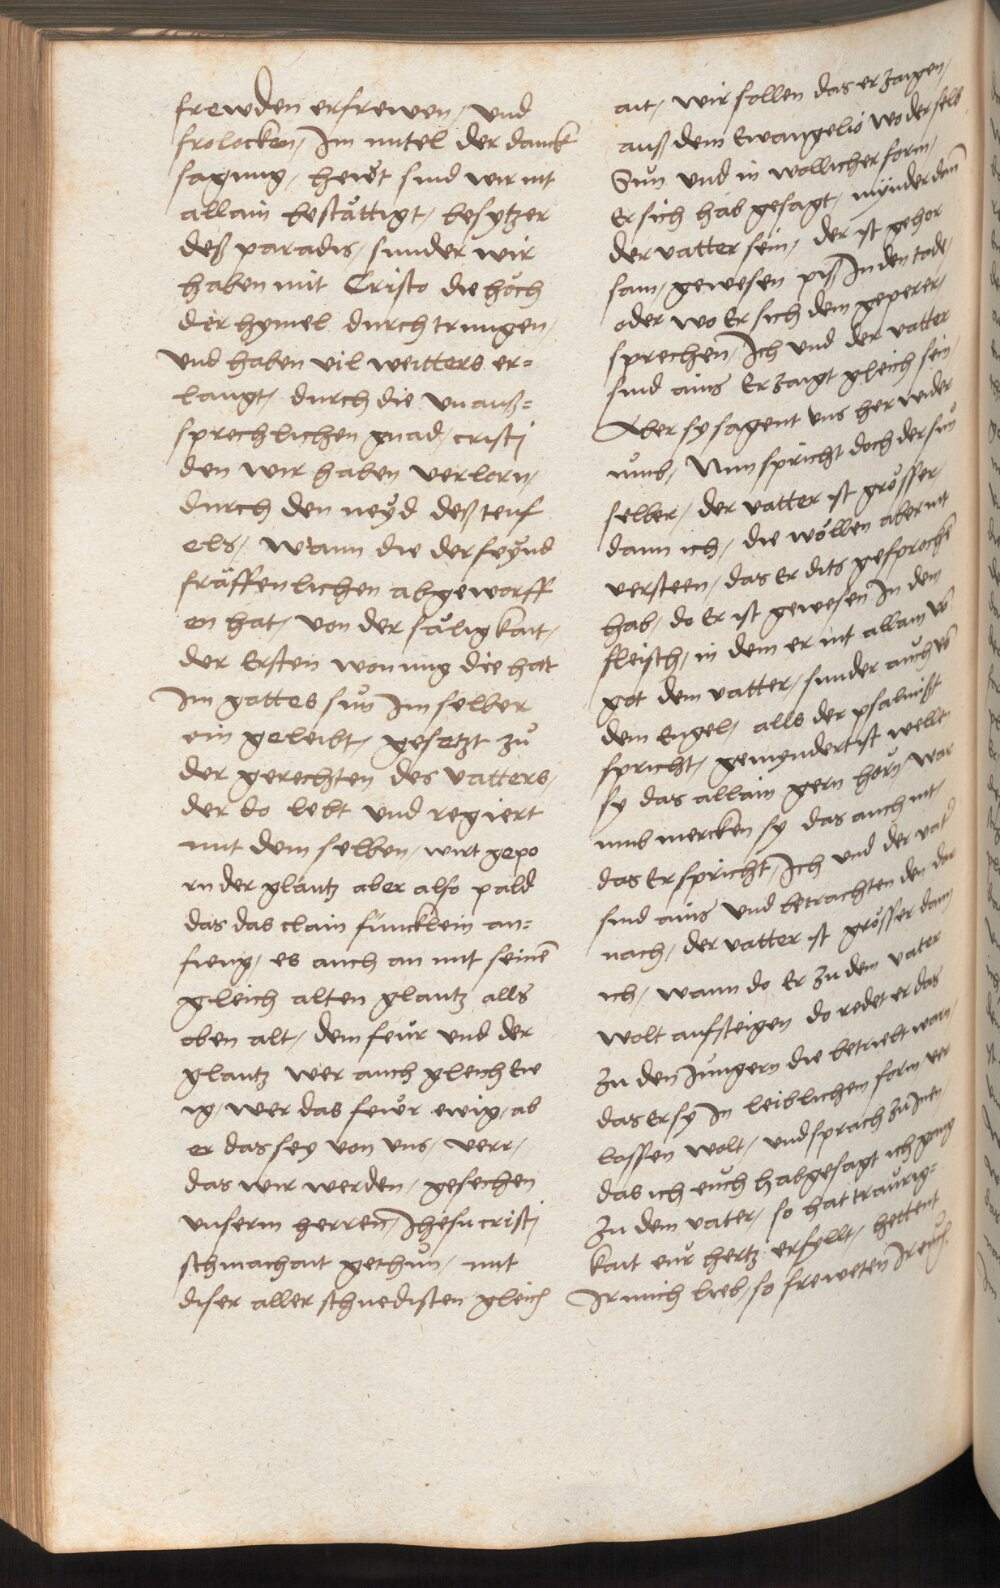 frewden erfrewen, vnd
frolocken, Im mitel der danck
sagung, hewt sind wir nit
allain bestättigt, besytzer
deß paradis, sunder wir
haben mit Cristo die höch
der hymel durch trungen,
vnd haben vil weitters er=
langt, durch die vnauß=
sprechlichen gnad, cristi
den wir haben verlorn,
durch den neyd deß teuf
els, wann die der feynd
fräffenlichen abgeworff
en hat, von der säligkait,
der Ersten wonung die hat
Im gottes sun Im selber
ein geleibt, gesetzt zu
der gerechten des vatters,
der do lebt vnd regiert
mit dem selben, wirt gepo
rn der glantz aber also pald
das das clain füncklein an=
fieng, es auch an mit seinē
gleich alten glantz alls
oben alt, dem feür vnd der
glantz wer auch gleich Ew
ig, wer das fewr ewig, ab
er das sey von vns, verr,
das wir werden, gesechen
vnserm herren, Ihesu cristi
schmachait gethun, mit
diser aller schnedisten gleich
ait, wir sollen das erzaigen,
auß dem Ewangelio wo der selb
Sun vnd in wöllicher form,
Er sich hab gesagt, mynder dañ
der vatter sein, der ist gehor
sam, gewesen piß In den tode,
oder wo Er sich dem geperer,
sprechen, Ich vnd der vatter
sind ains Erzaigt gleich sein,
Aber sy sagent vns her wider
umb, Nun spricht doch der sun
selber, der vatter ist grösser,
dann ich, die wöllen aber nit
versteen, das Er dits gesproche
hab, do Er ist gewesen In dem
fleisch, in dem er nit allain vō
got dem vatter, sunder auch vō
dem Engel, alls der psalmist
spricht, gemyndert ist welle
sy das allain gern hörn, war
umb mercken sy das auch nit,
das Er spricht, Ich vnd der vat̾
sind ains vnd betrachten den dar
nach, der vatter ist grösser dann
ich, wann do Er zu dem vater
wolt aufsteigen do redet er das
zu den Jungern die betriebt warn,
das Er sy In leiblichen form ver
lassen wolt, vnd sprach zu Inen,
das ich euch hab gesagt ich gang
zu dem vater, so hat traurig=
kait eur hertz erfyllt, hettent
Ir mich lieb, so freweten Ir euch.